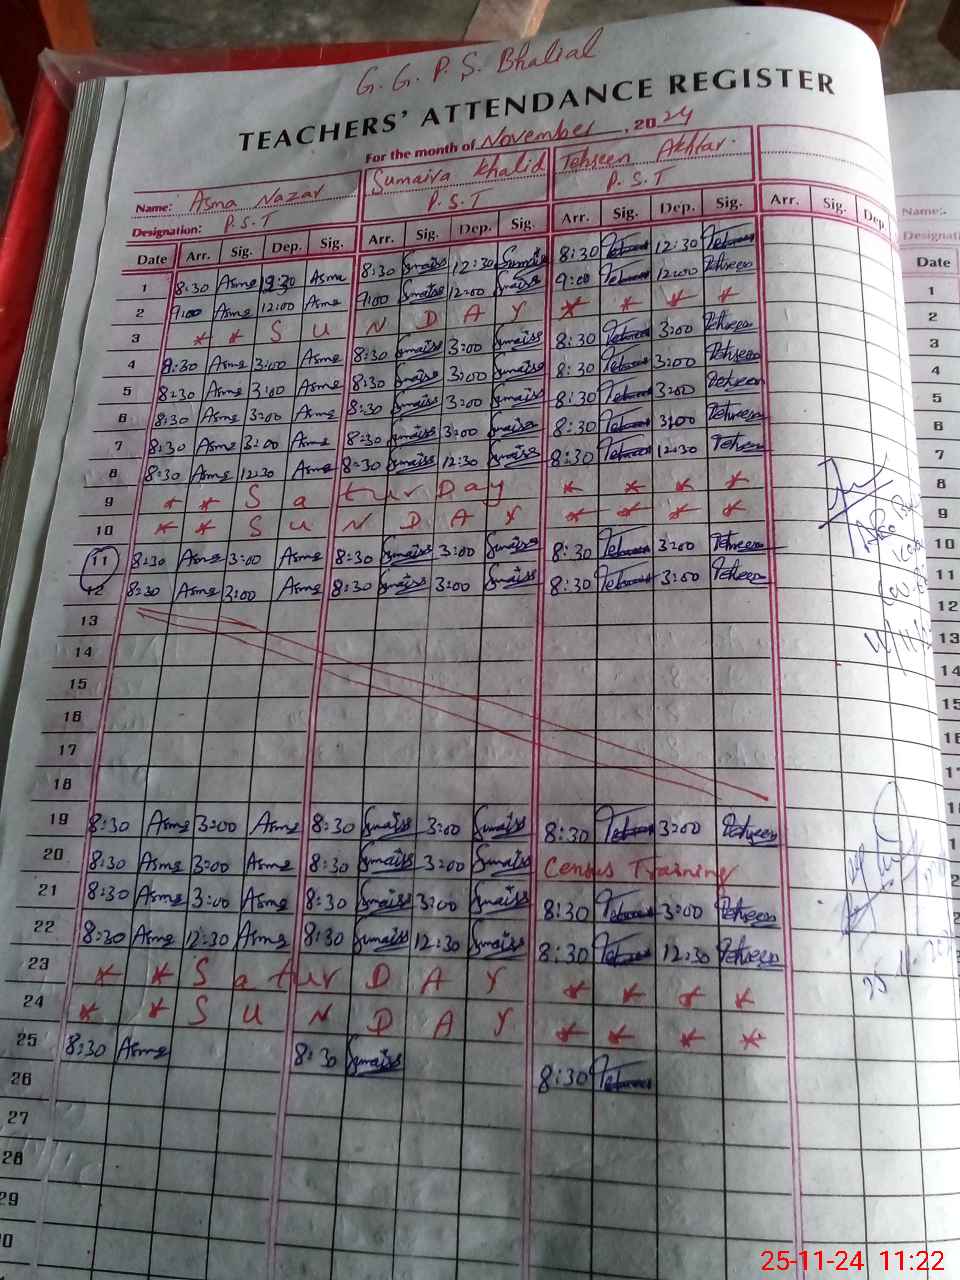 G. G. P. S. Bhalial
TEACHERS' ATTENDANCE REGISTER
For the month of November, 2024
Name: Asma Nazar Sumaira Khalid Tehseen Akhtar.
Designation: P.S.T P.S.T P.S.T
Date Arr. Sig. Dep. Sig. Arr. Sig. Dep. Sig. Arr. Sig. Dep. Sig. Arr. Sig. Dep.
1 8:30 Asma 12:30 Asma 8:30 Sumaira 12:30 Sumaira 8:30 Tehseen 12:30 Tehseen
2 9:00 Asma 12:00 Asma 9:00 Sumaira 12:00 Sumaira 9:00 Tehseen 12:00 Tehseen
3 * * S U N D A Y * * * *
4 8:30 Asma 3:00 Asma 8:30 Sumaira 3:00 Sumaira 8:30 Tehseen 3:00 Tehseen
5 8:30 Asma 3:00 Asma 8:30 Sumaira 3:00 Sumaira 8:30 Tehseen 3:00 Tehseen
6 8:30 Asma 3:00 Asma 8:30 Sumaira 3:00 Sumaira 8:30 Tehseen 3:00 Tehseen
7 8:30 Asma 3:00 Asma 8:30 Sumaira 3:00 Sumaira 8:30 Tehseen 3:00 Tehseen
8 8:30 Asma 12:30 Asma 8:30 Sumaira 12:30 Sumaira 8:30 Tehseen 12:30 Tehseen
9 * * S a tur D a y * * * *
10 * * S U N D A Y * * * *
11 8:30 Asma 3:00 Asma 8:30 Sumaira 3:00 Sumaira 8:30 Tehseen 3:00 Tehseen
12 8:30 Asma 3:00 Asma 8:30 Sumaira 3:00 Sumaira 8:30 Tehseen 3:00 Tehseen
13
14
15
16
17
18
19 8:30 Asma 3:00 Asma 8:30 Sumaira 3:00 Sumaira 8:30 Tehseen 3:00 Tehseen
20 8:30 Asma 3:00 Asma 8:30 Sumaira 3:00 Sumaira Census Training
21 8:30 Asma 3:00 Asma 8:30 Sumaira 3:00 Sumaira 8:30 Tehseen 3:00 Tehseen
22 8:30 Asma 12:30 Asma 8:30 Sumaira 12:30 Sumaira 8:30 Tehseen 12:30 Tehseen
23 * * S a tur D A Y * * * *
24 * * S U N D A Y * * * *
25 8:30 Asma 8:30 Sumaira 8:30 Tehseen
26
27
28
29
Name:
Date
1
2
3
4
5
6
7
8
9
10
11
12
13
14
15
25-11-24 11:22